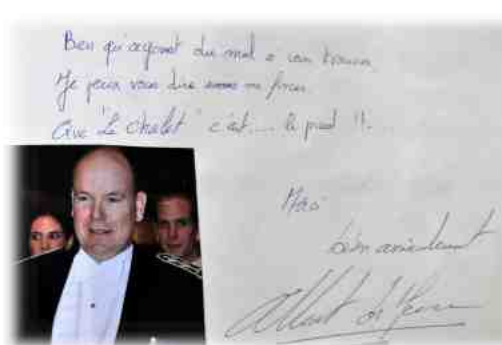 Bien qu'ayant du mal à vous trouver
Je peux vous dire sans me forcer
Que "Le Chalet" c'est.... le pied !!...
Merci
bien amicalement
Albert de